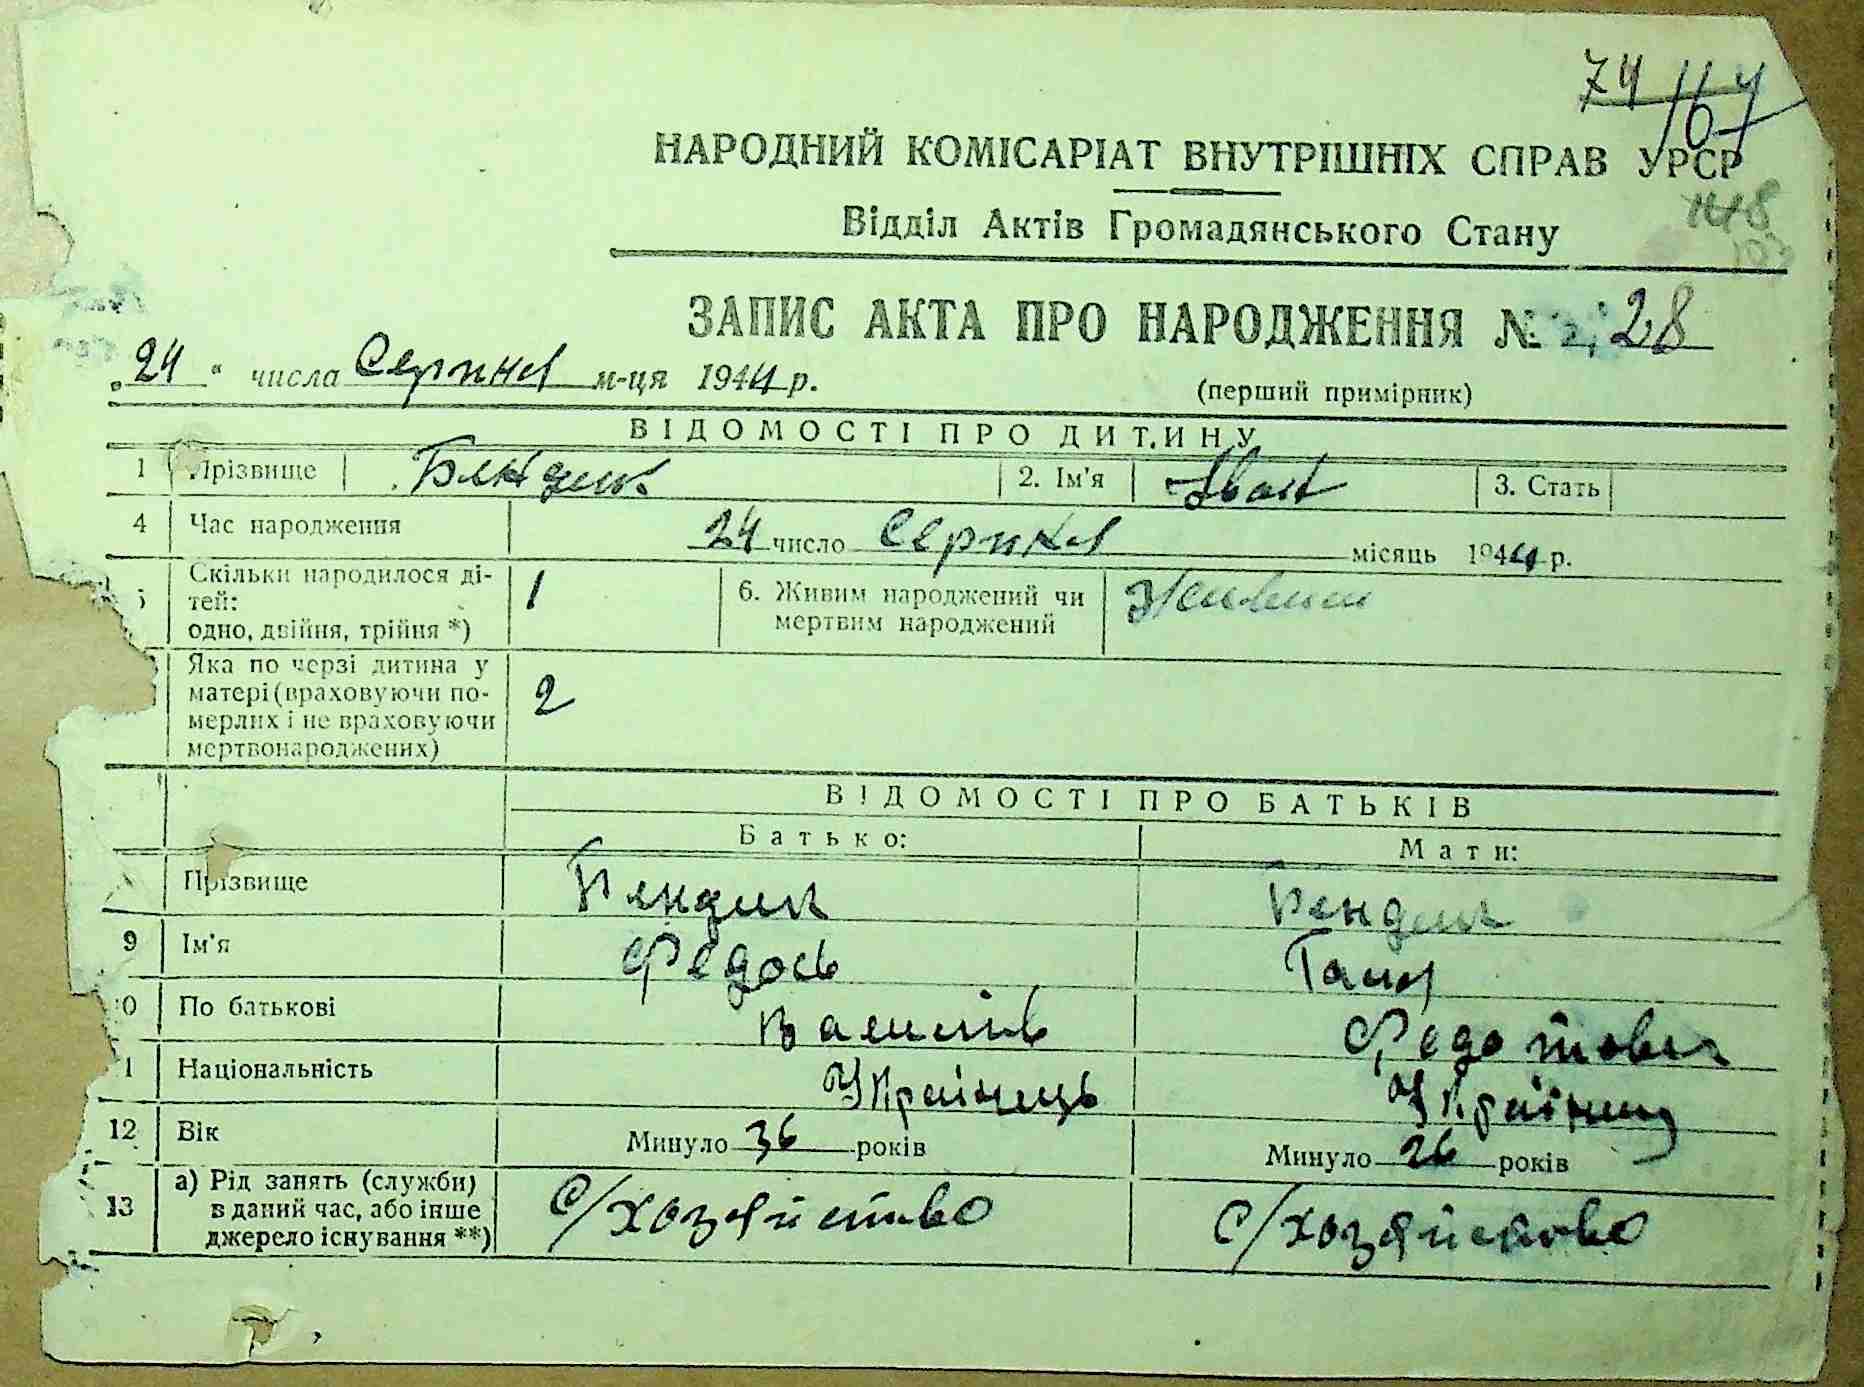 74/67
НАРОДНИЙ КОМІСАРІАТ ВНУТРІШНІХ СПРАВ УРСР
Відділ Актів Громадянського Стану
ЗАПИС АКТА ПРО НАРОДЖЕННЯ № 28
„24“ числа Серпня м-ця 1944 р.
(перший примірник)
ВІДОМОСТІ ПРО ДИТИНУ
1 Прізвище Бендик 2. Ім'я Іван 3. Стать
4 Час народження 24 число Серпня місяць 1944 р.
Скільки народилося ді-
тей:
одно, двійня, трійня *) 1 6. Живим народжений чи
мертвим народжений Живим
Яка по черзі дитина у
матері (враховуючи по-
мерлих і не враховуючи
мертвонароджених) 2
ВІДОМОСТІ ПРО БАТЬКІВ
Батько: Мати:
Прізвище Бендик Бендик
9 Ім'я Федось Ганя
0 По батькові Васильів Федотовна
1 Національність Українець Українка
12 Вік Минуло 36 років Минуло 26 років
13 а) Рід занять (служби)
в даний час, або інше
джерело існування **) С/хозяйство С/хозяйство